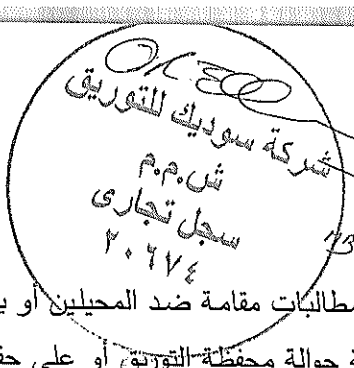 شركة سوديك للتوريق
ش.م.م
سجل تجارى
٢٠٦٧٤
مطالبات مقامة ضد المحيلين أو ي
حوالة محفظة التوريق أو على حق